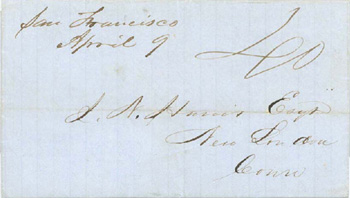 San Francisco
April 9
40
J. N. Harris Esqr
New London
Conn